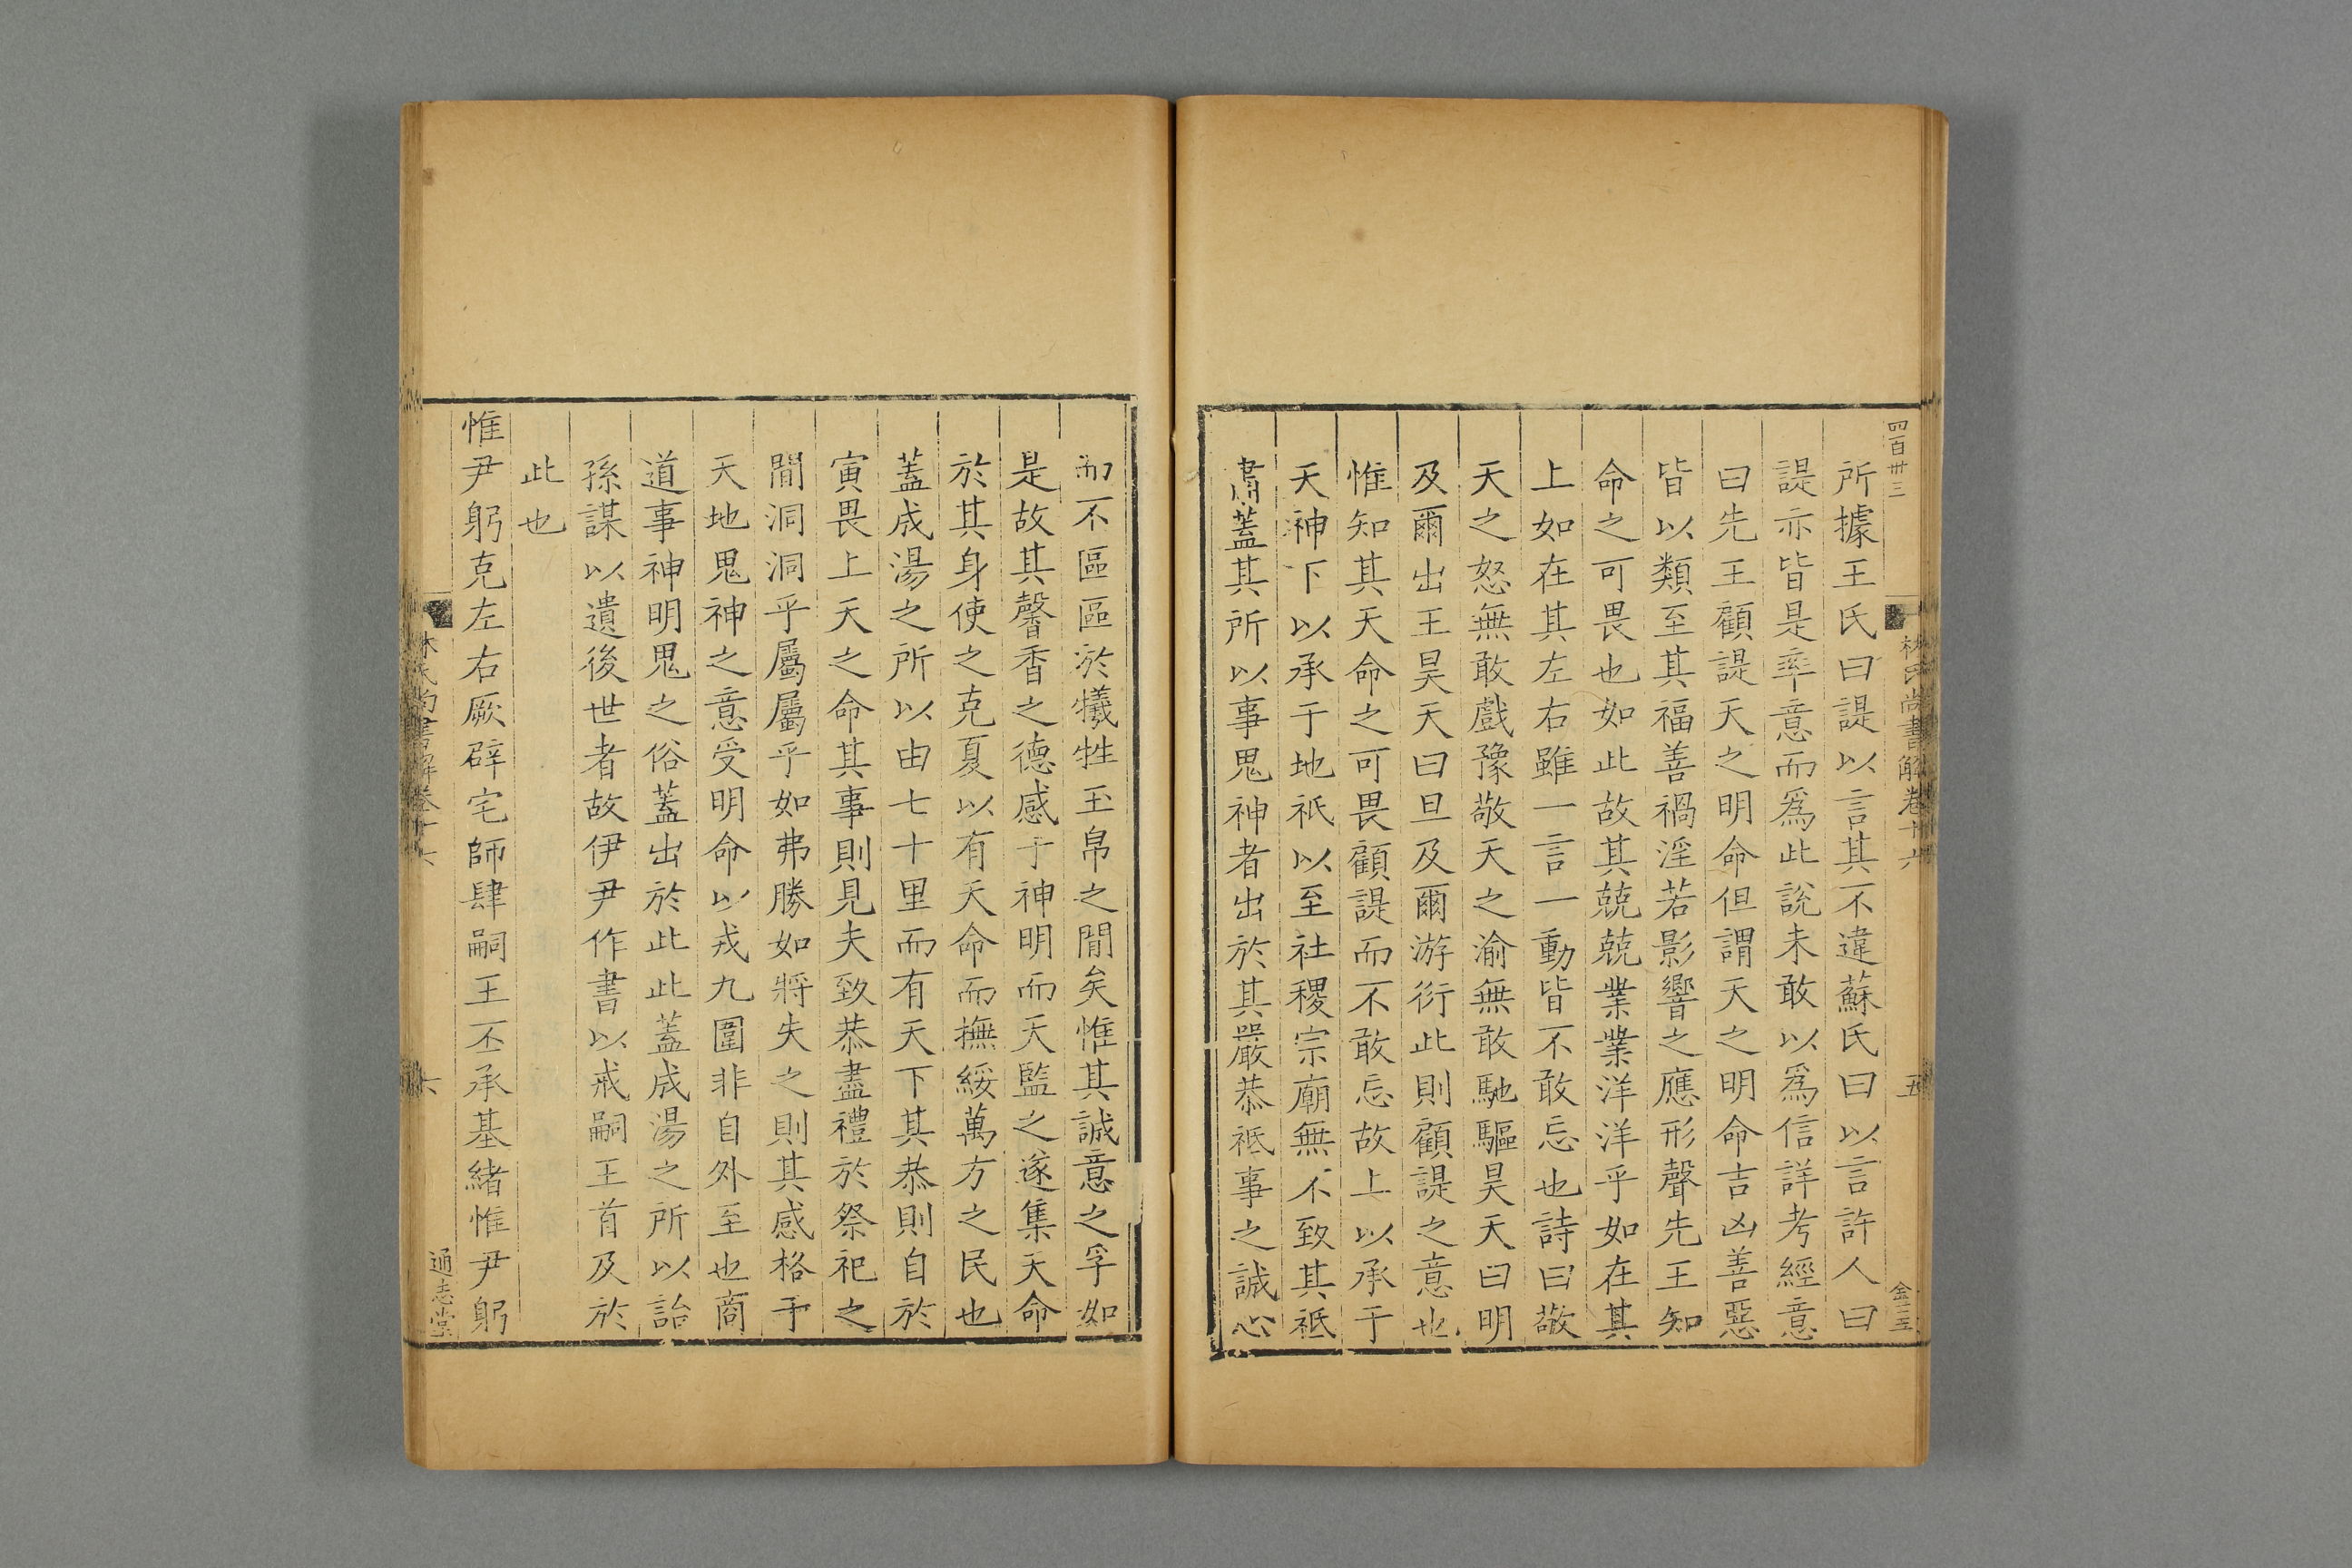 四百卅三
林氏尚書解卷十六
五
金三玉
所據王氏曰諟以言其不違蘇氏曰以言許人曰
諟亦皆是率意而爲此說未敢以爲信詳考經意
曰先王顧諟天之明命但謂天之明命吉凶善惡
皆以類至其福善禍淫若影響之應形聲先王知
命之可畏也如此故其兢兢業業洋洋乎如在其
上如在其左右雖一言一動皆不敢忘也詩曰敬
天之怒無敢戲豫敬天之渝無敢馳驅昊天曰明
及爾出王昊天曰旦及爾游衍此則顧諟之意也
惟知其天命之可畏顧諟而不敢忘故上以承于
天神下以承于地祇以至社稷宗廟無不致其祗
肅蓋其所以事鬼神者出於其嚴恭祗事之誠心
而不區區於犧牲玉帛之間矣惟其誠意之孚如
是故其馨香之德感于神明而天監之遂集天命
於其身使之克夏以有天命而撫綏萬方之民也
蓋成湯之所以由七十里而有天下其恭則自於
寅畏上天之命其事則見夫致恭盡禮於祭祀之
間洞洞乎屬屬乎如弗勝如將失之則其感格于
天地鬼神之意受明命以戎九圍非自外至也商
道事神明鬼之俗蓋出於此此蓋成湯之所以詒
孫謀以遺後世者故伊尹作書以戒嗣王首及於
此也
惟尹躬克左右厥辟宅師肆嗣王丕承基緒惟尹躬
林氏尚書解卷十六
六
通志堂